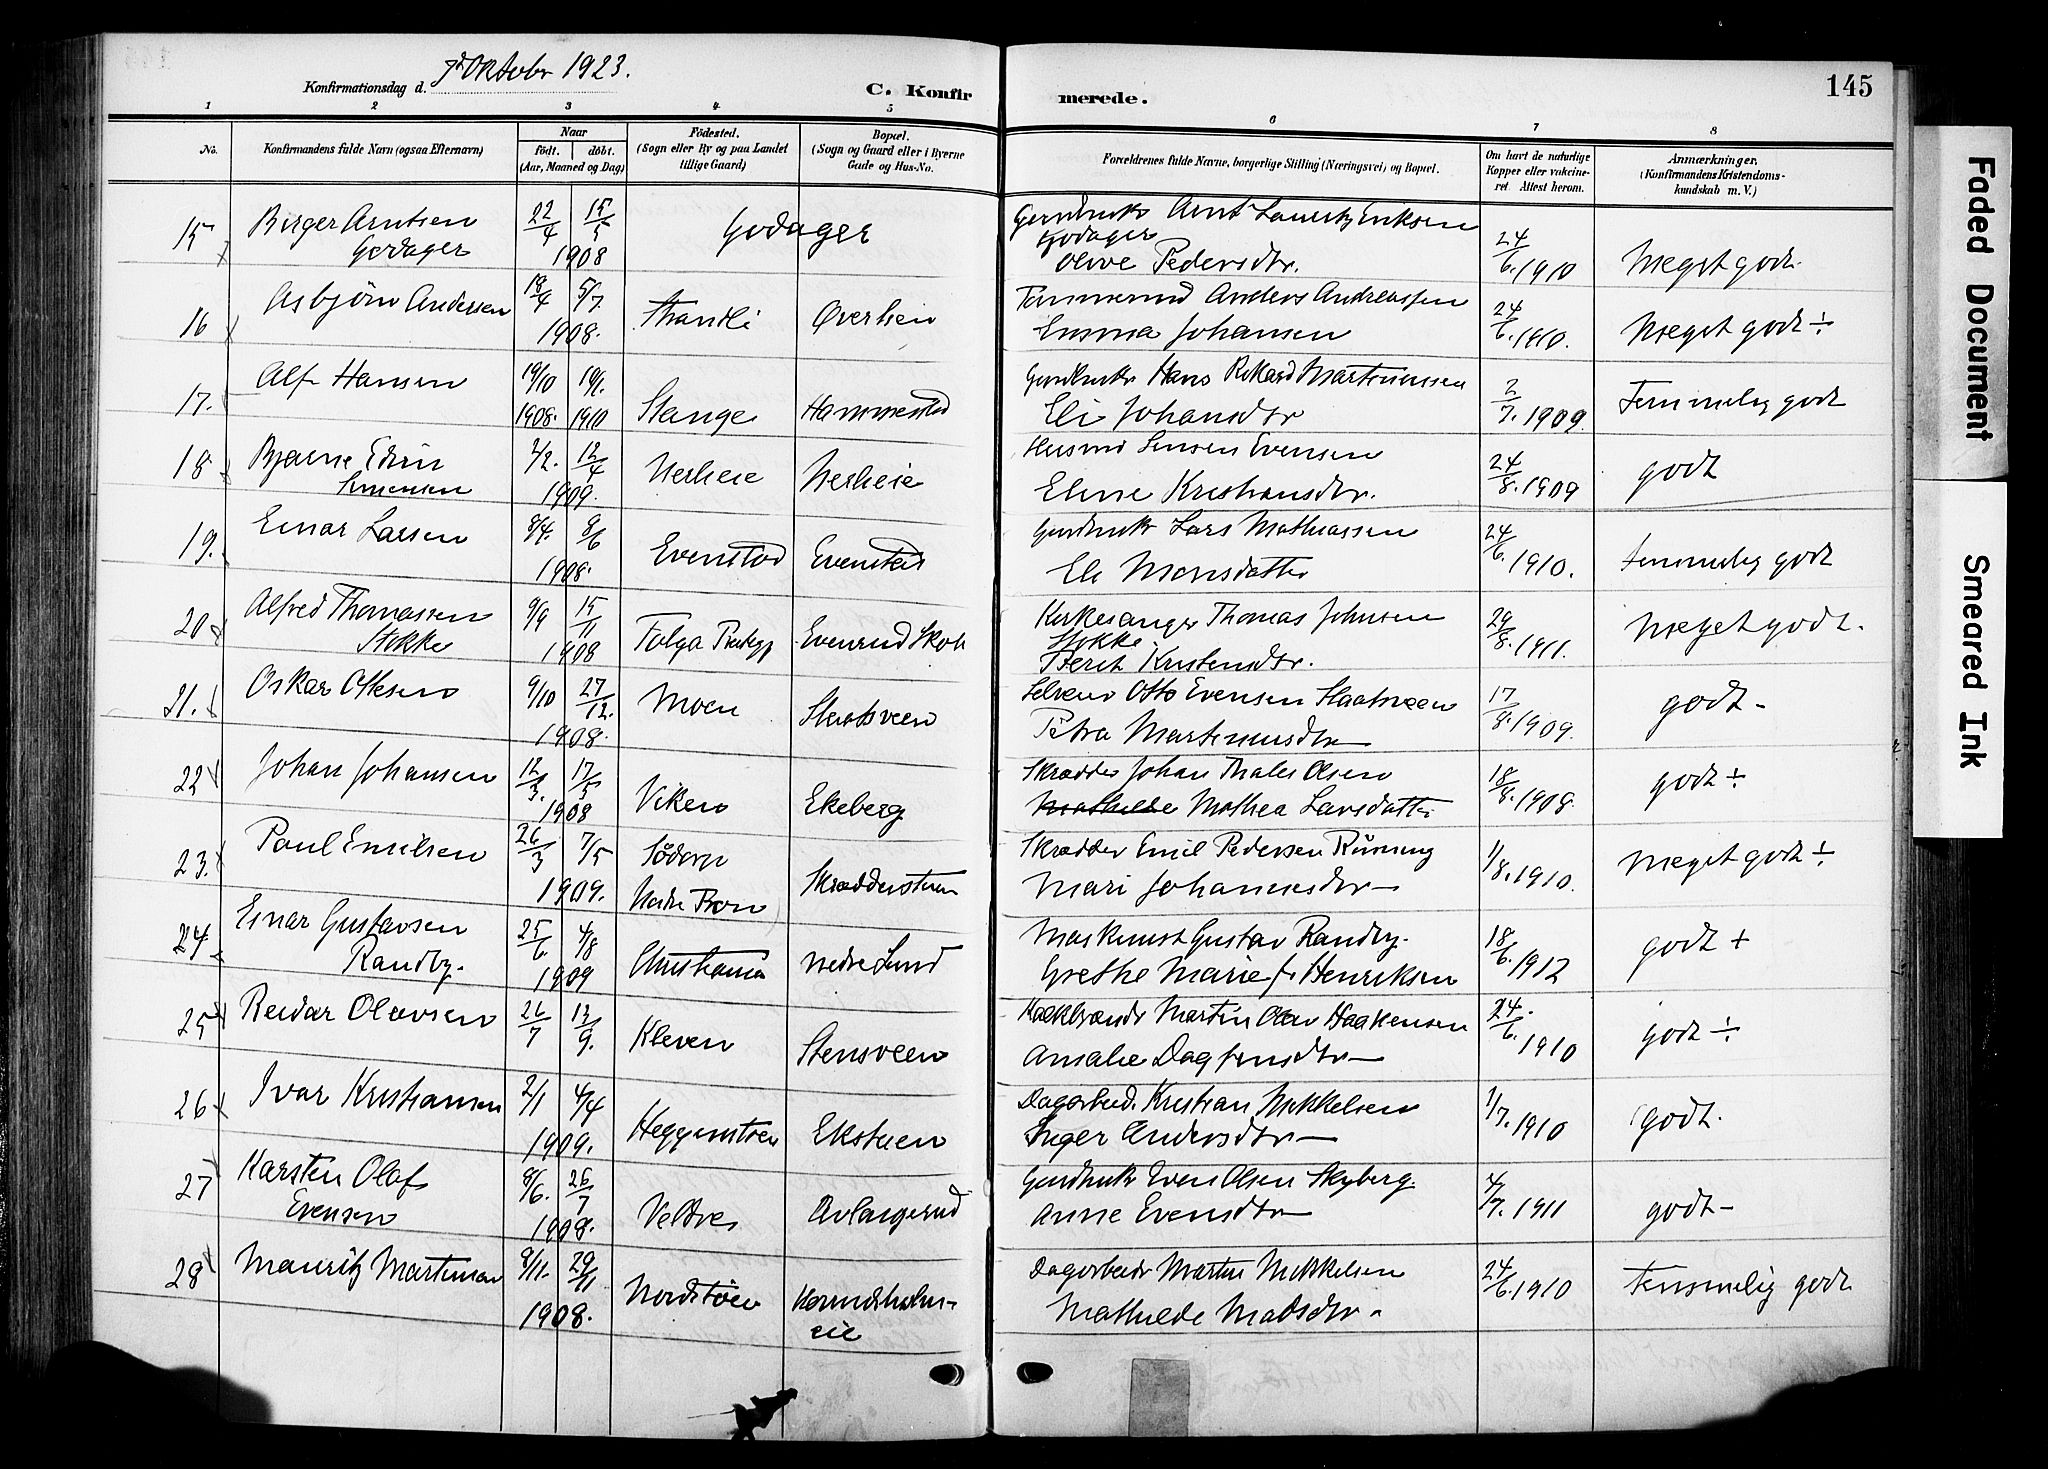 Konfirmationsdag d. 7de Oktober 1923.
C. Konfirmerede.
145
1 2 3 4 5 6 7 8
No.
Konfirmandens fulde Navn (ogsaa Efternavn)
Naar
født. døbt.
(Aar, Maaned og Dag)
Fødested.
(Sogn eller By og paa Landet
tillige Gaard)
Bopæl.
(Sogn og Gaard eller i Byerne
Gade og Hus-No.
Forældrenes fulde Navne, borgerlige Stilling (Næringsvei) og Bopæl.
Om havt de naturlige
Kopper eller vakcine-
ret. Attest herom.
Anmærkninger.
(Konfirmandens Kristendoms-
kundskab m. V.)
15 Birger Arntsen 22/4 15/5 Godager Gaardbruker Arnt Lauritz Eriksen
Godager 1908 Godager Olive Pedersdtr. 24/6.1910 Meget godt.
16 Asbjørn Andersen 18/4 5/7 Tømmermd Anders Andreassen
1908. Strandli Øverlien Emma Johansen 24/6.1910. Meget godt ÷
17. Alf Hansen 19/10 10/1. Gaardbruker Hans Rikard Martinussen
1908. 1910 Stange Hammerstad Eli Johansdtr 2/7.1909. Temmelig godt
18 Bjarne Edvin 2/2. 12/4 Husmd Simen Evensen
Simensen 1909. Nerheie Nerheie Eline Kristiansdtr. 24/8.1909 godt
19. Einar Larsen 8/4. 8/6 Gaardbruker Lars Mathiassen
1908. Evenstad Evenstad Eli Monsdatter 24/6.1910. Temmelig godt
20 Alfred Thomassen 9/9 15/11 Kirkesanger Thomas Johnsen
Stokke 1908 Tolga Prestegj Evenrud Skole Stokke Berit Kristensdtr. 29/8.1911. Meget godt.
21. Oskar Ottesen 9/10 27/12. Selveier Otto Evensen Slaatsveen
1908. Moen Slaatsveen Petra Martinusdtr 17/8.1909. godt -
22 Johan Johansen 12/3. 17/5 Skrædder Johan Thales Olsen
1908 Viken Ekeberg Mathilde Mathea Larsdatter 18/8.1908. godt ÷
23. Paul Emilsen 26/3 7/5 Södorp Skrædder Emil Pedersen Rüning
1909. Nordre Fron Skrædderstuen Mari Johannesdtr 1/8.1910. Meget godt ÷
24. Einar Gustavsen 25/6. 4/8 Maskinist Gustav Randby.
Randby. 1909 Christiania Nedre Lund Grethe Marie f. Henriksen 18/6.1912 godt +
25 Reidar Olavsen 26/7 13/9. Kleven Stensveen Kalkbrænder Martin Olav Haakensen
Amalie Dagfinsdtr 24/6.1910 godt ÷
26 Ivar Kristiansen 2/1 4/4 Dagarbeid. Kristian Mikkelsen
1909. Ekstuen Inger Andersdtr 1/7.1910 godt.
27 Karsten Olaf 8/6. 26/7 Gaardbruker Even Olsen Skyberg.
Evensen 1908. Veldre Avlangerud Anne Evensdtr 4/7.1911 godt -
28 Mauritz Martinsen 8/11. 29/11 Dagarbeider Martin Mikkelsen
1908. Nordstøen Mathilde Madsdtr. 24/6.1910 Temmelig godt
Faded Document
Smeared Ink